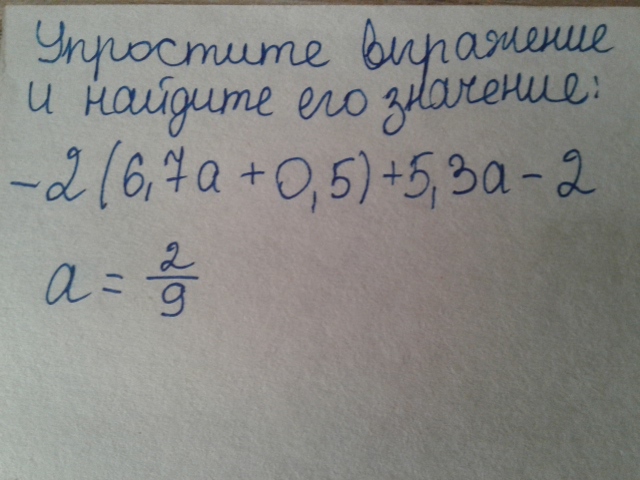 Упростите выражение
и найдите его значение:
-2(6,7a+0,5)+5,3a-2
a = 2/9